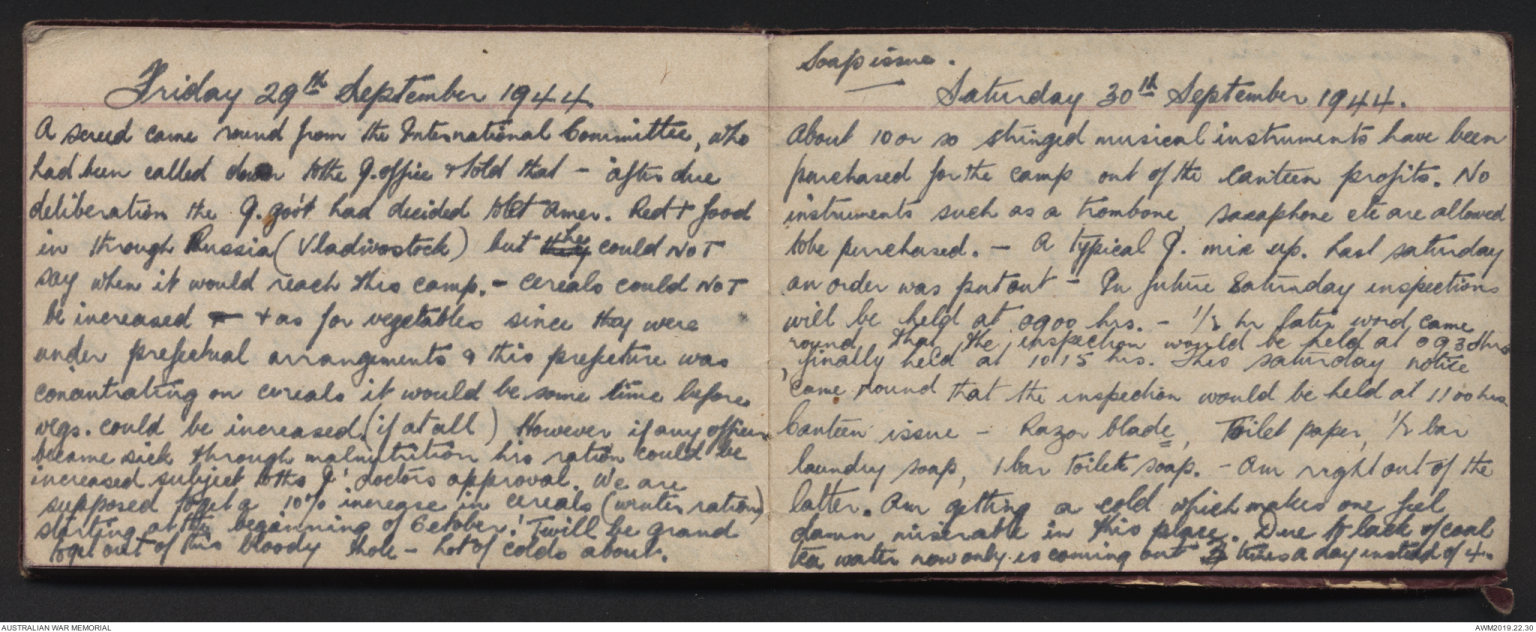 Friday 29th September 1944
A screed came round from the International Committee, who
had been called down to the J. office & told that - after due
deliberation the J. gov't had decided to let Amer. Red + food
in through Russia (Vladivostock) but they could NOT
say when it would reach this camp. - cereals could NOT
be increased & as for vegetables since they were
under prefectual arrangements & this prefecture was
concentrating on cereals it would be some time before
vegs. could be increased, (if at all) However if any officer
became sick through malnutrition his ration could be
increased subject to the J' doctors approval. We are
supposed to get a 10% increase in cereals (winter ration)
starting at the beginning of October! Twill be grand
to get out of this bloody hole - Lot of colds about.
Soap issue.
Saturday 30th September 1944.
About 10 or so stringed musical instruments have been
purchased for the camp out of the canteen profits. No
instruments such as a trombone saxaphone etc are allowed
to be purchased. - A typical J. mix up. Last saturday
an order was put out - In future Saturday inspections
will be held at 0900 hrs. - 1/2 hr later word came
round that the inspection would be held at 0930 hrs
, finally held at 1015 hrs. This saturday notice
came round that the inspection would be held at 1100 hrs.
Canteen issue - Razor blade, Toilet paper, 1/2 bar
laundry soap, 1 bar toilet soap. - Am right out of the
latter. Am getting a cold which makes one feel
damn miserable in this place. Due to lack of coal
tea water now only is coming out times a day instead of 4.
AUSTRALIAN WAR MEMORIAL
AWM2019.22.30